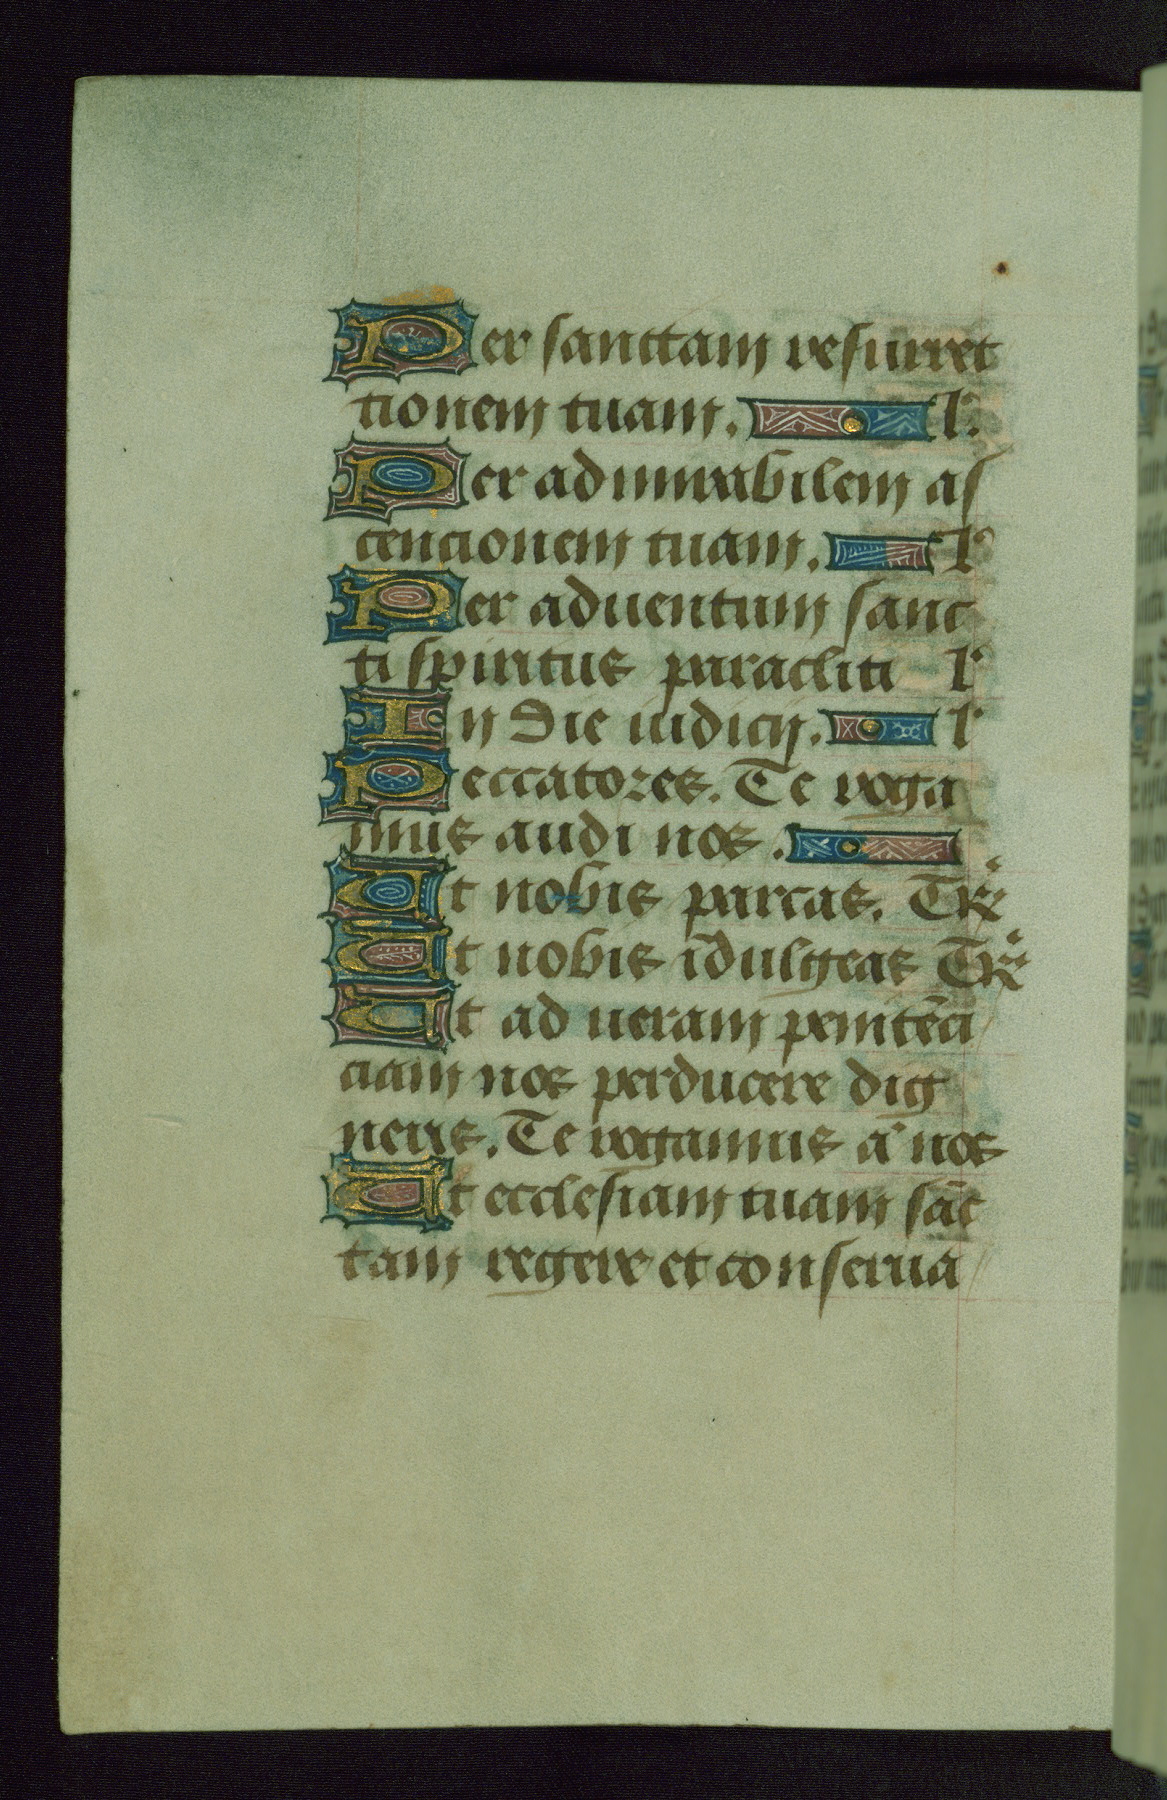 Per sanctam resurrec
tionem tuam. l.
Per admirabilem as
cencionem tuam. l
Per aduentum sanc
ti spiritus paracliti l
In die iudicij. l
Peccatores. Te roga
mus audi nos.
Ut nobis parcas. TR
Ut nobis īdulgeas TR
Ut ad ueram penitēci
ciam nos perducere dig
neris. Te rogamus a nos
Ut ecclesiam tuam sāc
tam regere et conserua